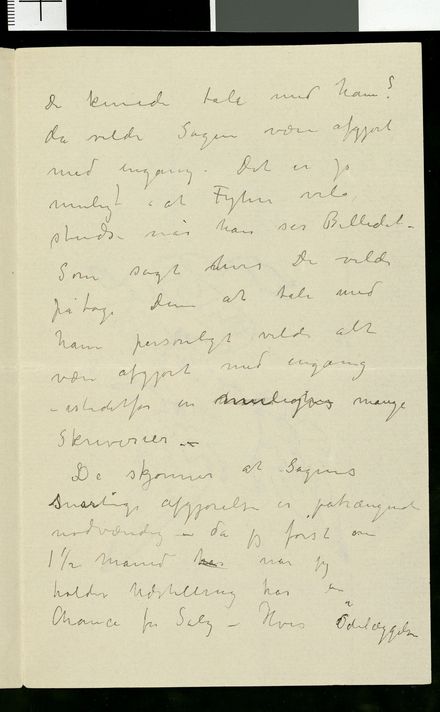 De kunde tale med ham?
da vilde Sagen være afgjort
med engang. Det er jo
muligt at Fyhn vil
studse når han ser Billedet –
Som sagt hvis De vilde
påtage Dem at tale med
ham personligt vilde alt
være afgjort med engang
– istedetfor en mange
Skriverier –
De skjønner at Sagens
snarlige afgjørelse er påtrængende
nødvændig – da jeg først om
1½ Maned når jeg
holder Udstilling har en
Chance for Salg – Hvis Ødelæggelsen